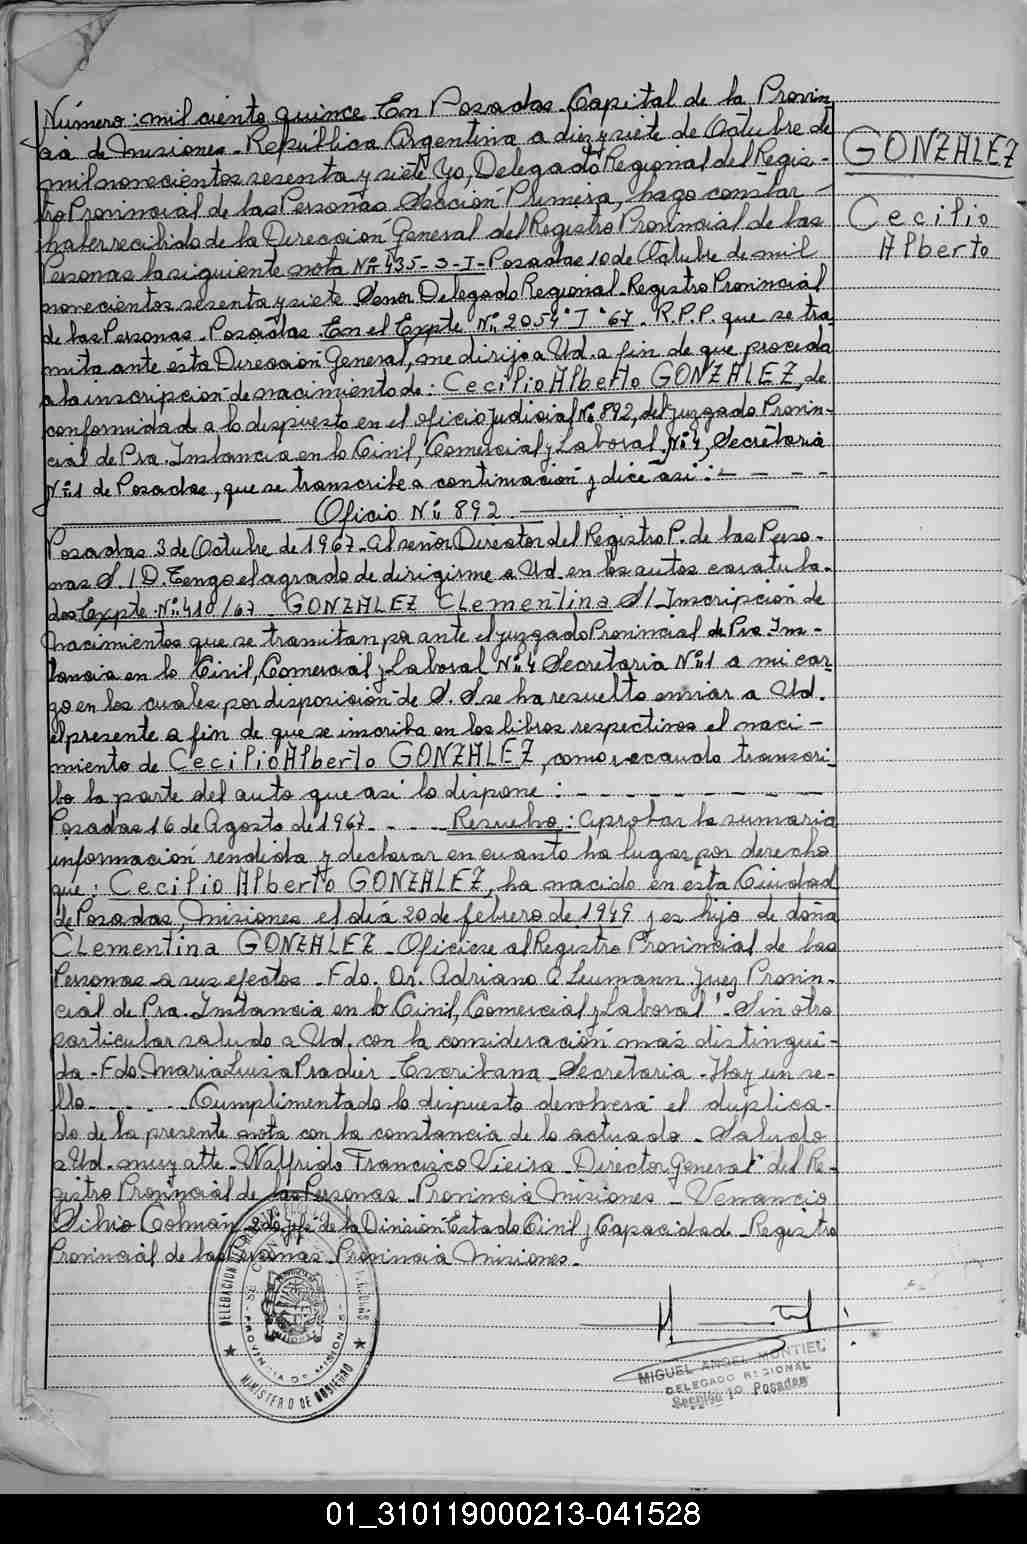 Número: mil ciento quince En Posadas Capital de la Provin
cia de Misiones - República Argentina a diez y siete de Octubre de
mil novecientos sesenta y siete Yo, Delegado Regional del Regis-
tro Provincial de las Personas Sección Primera, hago constar
haber recibido de la Dirección General del Registro Provincial de las
Personas la siguiente nota Nº 435-S-I- Posadas 10 de Octubre de mil
novecientos sesenta y siete Señor Delegado Regional - Registro Provincial
de las Personas - Posadas. En el Expte Nº 2054"I"67 - R.P.P. que se tra
mita ante ésta Dirección General, me dirijo a Ud. a fin de que proceda
a la inscripción de nacimiento de: Cecilio Alberto GONZALEZ, de
conformidad a lo dispuesto en el oficio judicial Nº 892, del Juzgado Provin-
cial de Pra. Instancia en lo Civil, Comercial y Laboral Nº 4, Secretaria
Nº 1 de Posadas, que se transcribe a continuación y dice asi:- - - -
Oficio Nº 892
Posadas 3 de Octubre de 1967 - Al señor Director del Registro P. de las Perso-
nas S. / D. Tengo el agrado de dirigirme a Ud. en los autos caratula-
dos Expte. Nº 410/67 - GONZALEZ Clementina S/ Inscripción de
nacimientos que se tramitan por ante el Juzgado Provincial de Pra. Ins-
tancia en lo Civil, Comercial y Laboral Nº 4 Secretaria Nº 1 a mi car-
go en los cuales por disposición de S. S. se ha resuelto enviar a Ud.
el presente a fin de que se inscriba en los libros respectivos el naci-
miento de Cecilio Alberto GONZALEZ, como recaudo transcri-
bo la parte del auto que asi lo dispone: - - - - - - -
Posadas 16 de Agosto de 1967 - - - - Resuelvo: Aprobar la sumaria
información rendida y declarar en cuanto ha lugar por derecho
que: Cecilio Alberto GONZALEZ, ha nacido en esta Ciudad
de Posadas, Misiones el día 20 de febrero de 1949 y es hijo de doña
Clementina GONZALEZ - Oficiese al Registro Provincial de las
Personas a sus efectos - Fdo. Dr. Adriano Leumann Juez Provin-
cial de Pra. Instancia en lo Civil, Comercial y Laboral". Sin otro
particular saludo a Ud. con la consideración más distingui-
da - Fdo. Maria Luisa Pradier - Escribana - Secretaria - Hay un se-
llo - - - - Cumplimentado lo dispuesto devolverá el duplica-
do de la presente nota con la constancia de lo actuado - Saludo
a Ud. muy atte - Walfrido Francisco Vieira - Director General del Re-
gistro Provincial de las Personas - Provincia Misiones - Venancio
Silvio Colmán - Jefe de la División Estado Civil y Capacidad - Registro
Provincial de las Personas - Provincia Misiones -
GONZALEZ
Cecilio
Alberto
PROVINCIA DE MISIONES
MINISTERIO DE GOBIERNO
MIGUEL ANGEL MONTIEL
DELEGADO REGIONAL
Sección 1º Posadas
01_310119000213-041528